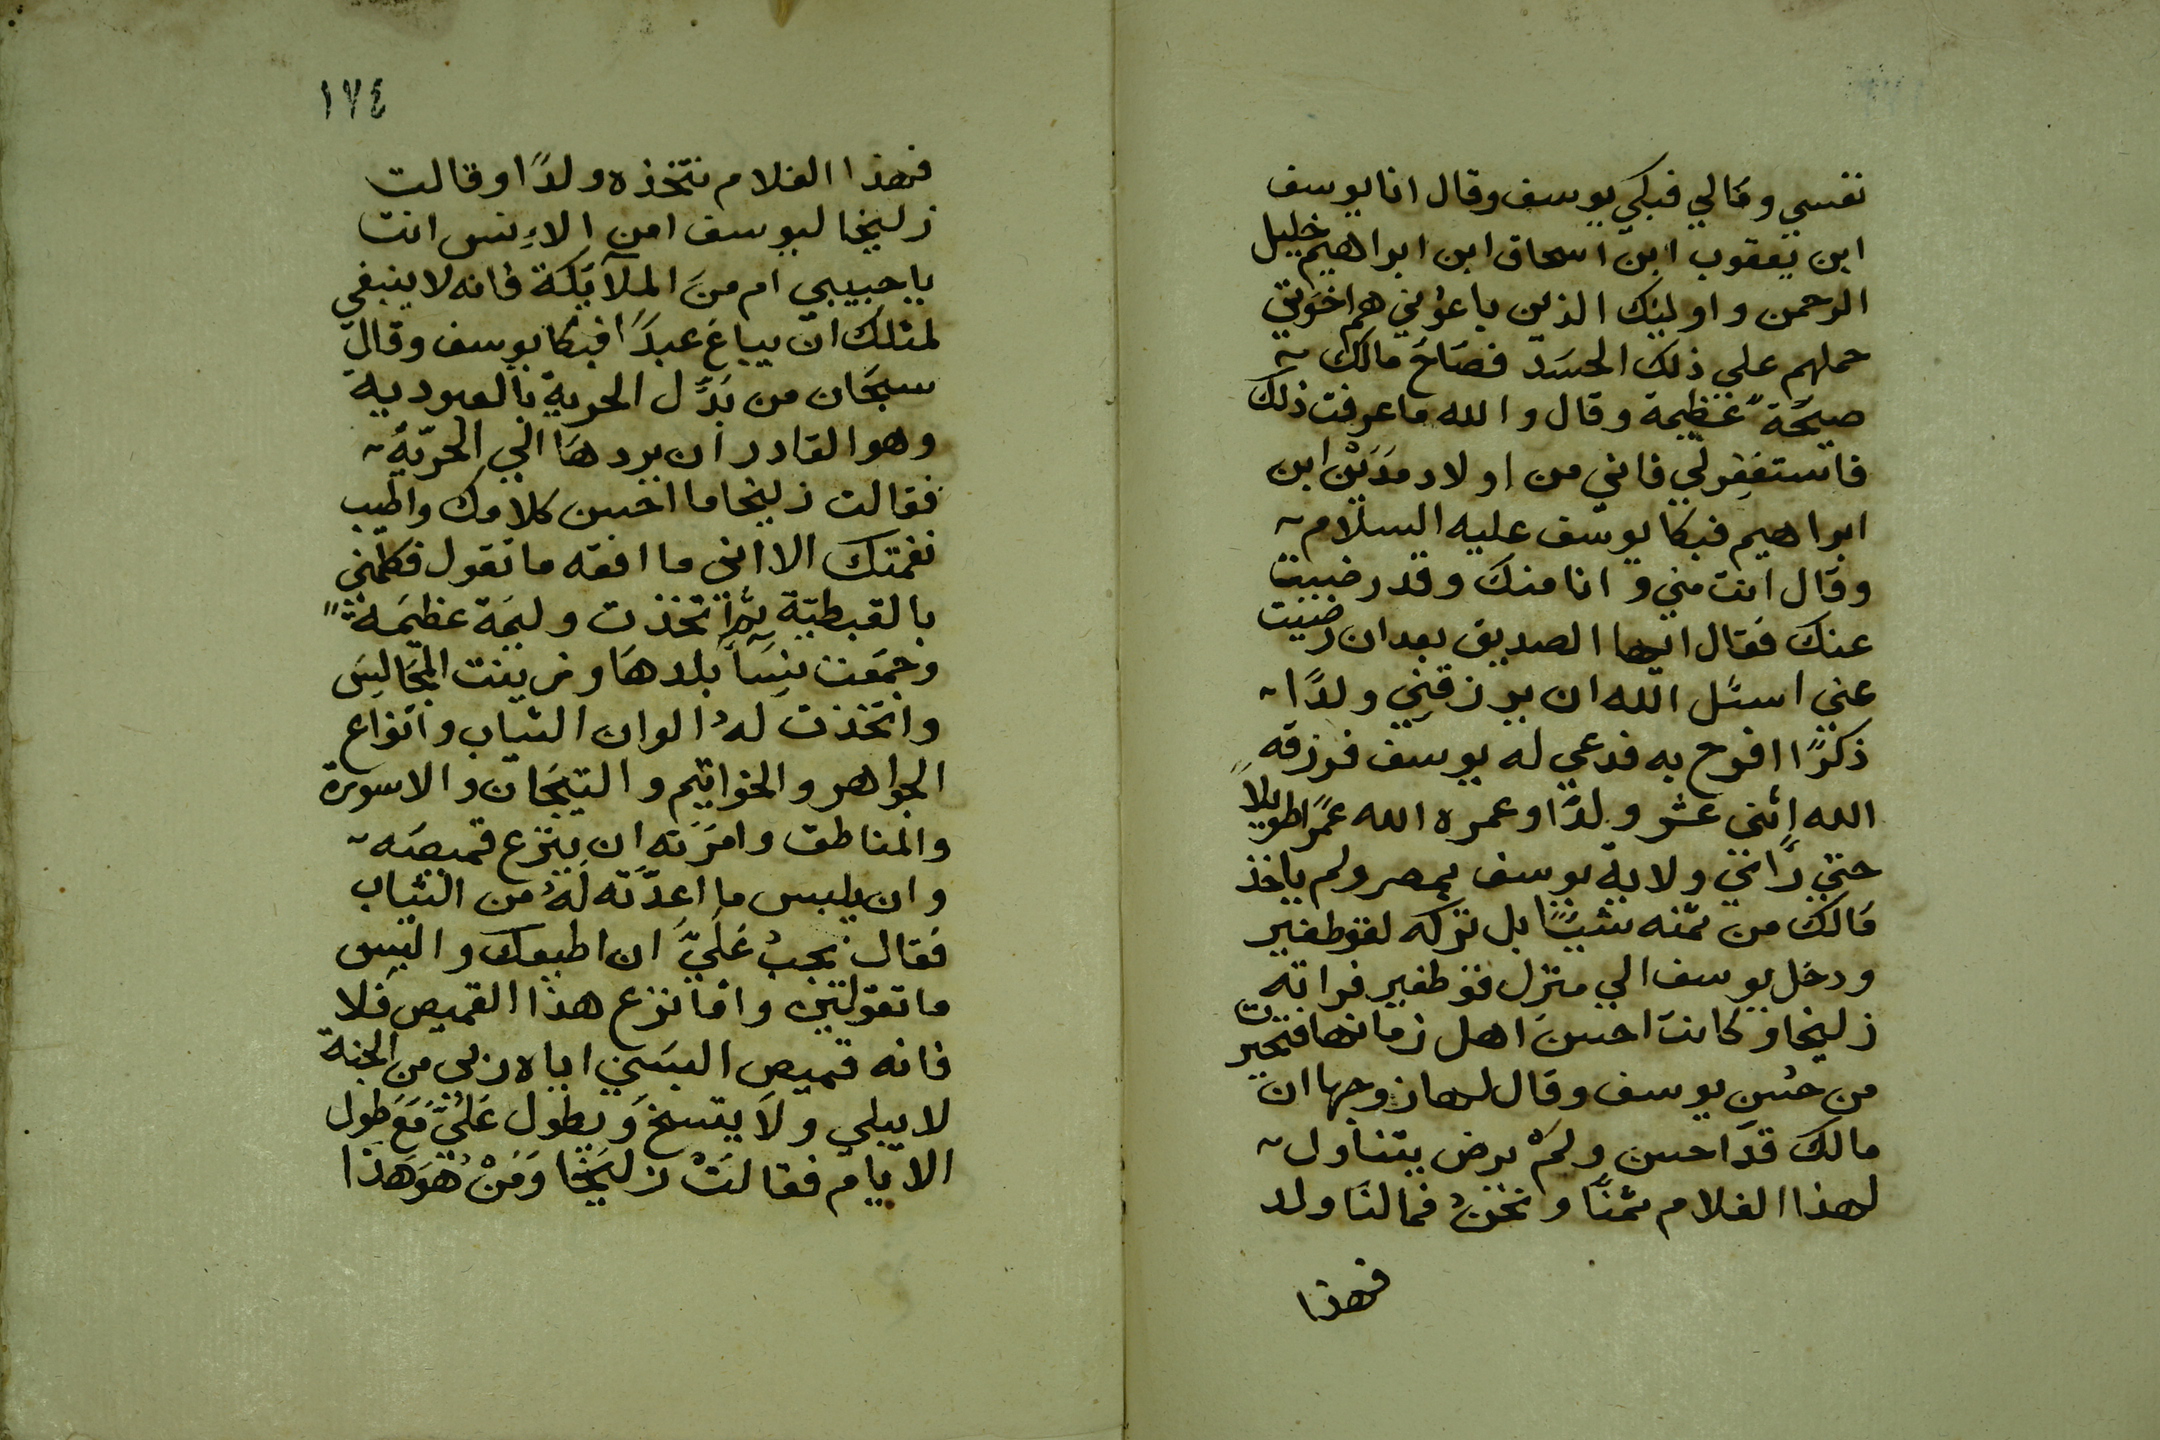 نفسي ومالي فبكي يوسف وقال انا يوسف
ابن يعقوب ابن اسحاق ابن ابراهيم خليل
الرحمن واوليك الذين باعوني هم اخوتي
حملهم علي ذلك الحسد فصاح مالك
صيحة عظيمة وقال والله ما عرفت ذلك
فاستغفر لي فاني من اولاد مَدَيْن ابن
ابراهيم فبكا يوسف عليه السلام
وقال انت مني وانا منك وقد رضيت
عنك فقال ايها الصديق بعد ان رضيت
عني اسئل الله ان يرزقني ولدًا
ذكرًا افرح به فدعي له يوسف فرزقه
الله اثني عشر ولدًا وعمره الله عمرًا طويلاً
حتي راني ولاية يوسف بمصر ولم ياخذ
مالك من ثمنه شيئًا بل تركه لقوطفير
ودخل يوسف الي منزل قوطفير فراته
زليخا وكانت احسن اهل زمانها فتحيرت
من حسن يوسف وقال لها زوجها ان
مالك قد احسن ولم يرض يتناول
لهذا الغلام ثمنًا ونحن فمالنا ولد
فهذا
١٧٤
فهذا الغلام نتخذه ولدًا وقالت
زليخا ليوسف امن الاءِنس انت
يا حبيبي ام منَ الملآيكة فانه لا ينبغي
لمثلك ان يباع عبدًا فبكا يوسف وقال
سبحان من بَدَّل الحرية بالعبودية
وهو القادر ان يردها الي الحرّية
فقالت زليخا ما احسن كلامك واطيب
نغمتك الا انني ما افقه ما تقول فكلمني
بالقبطيّة ثم اتخذت وليمَة عظيمَة
وجمعت نِسَآ بلدها وزينت المجَالِسَ
واتخذت لهُ الوان الثياب وانواع
الجواهر والخواتيم والتيجان والاسورة
والمناطق وامرَته ان ينزع قميصَه
وان يلبس ما اعدَّته لَهُ من الثياب
فقال يجبُ عَلَيَّ ان اطيعك والبس
ما تقولين واما نزع هذا القميص فلا
فانه قميص البسَني اياه ربي من الجنة
لا يبلي ولَا يتسخ ويطول عَلَيَّ مَعَ طول
الايام فقالَتْ زليخا وَمَنْ هُوَ هَذا